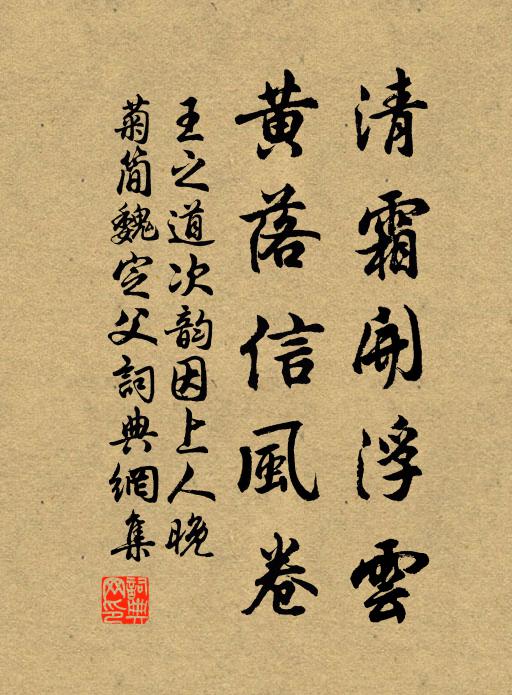 清霜開浮雲
黄落信風卷
王之道次韵因上人晚
菊簡魏定父詞典網集
詞典網印